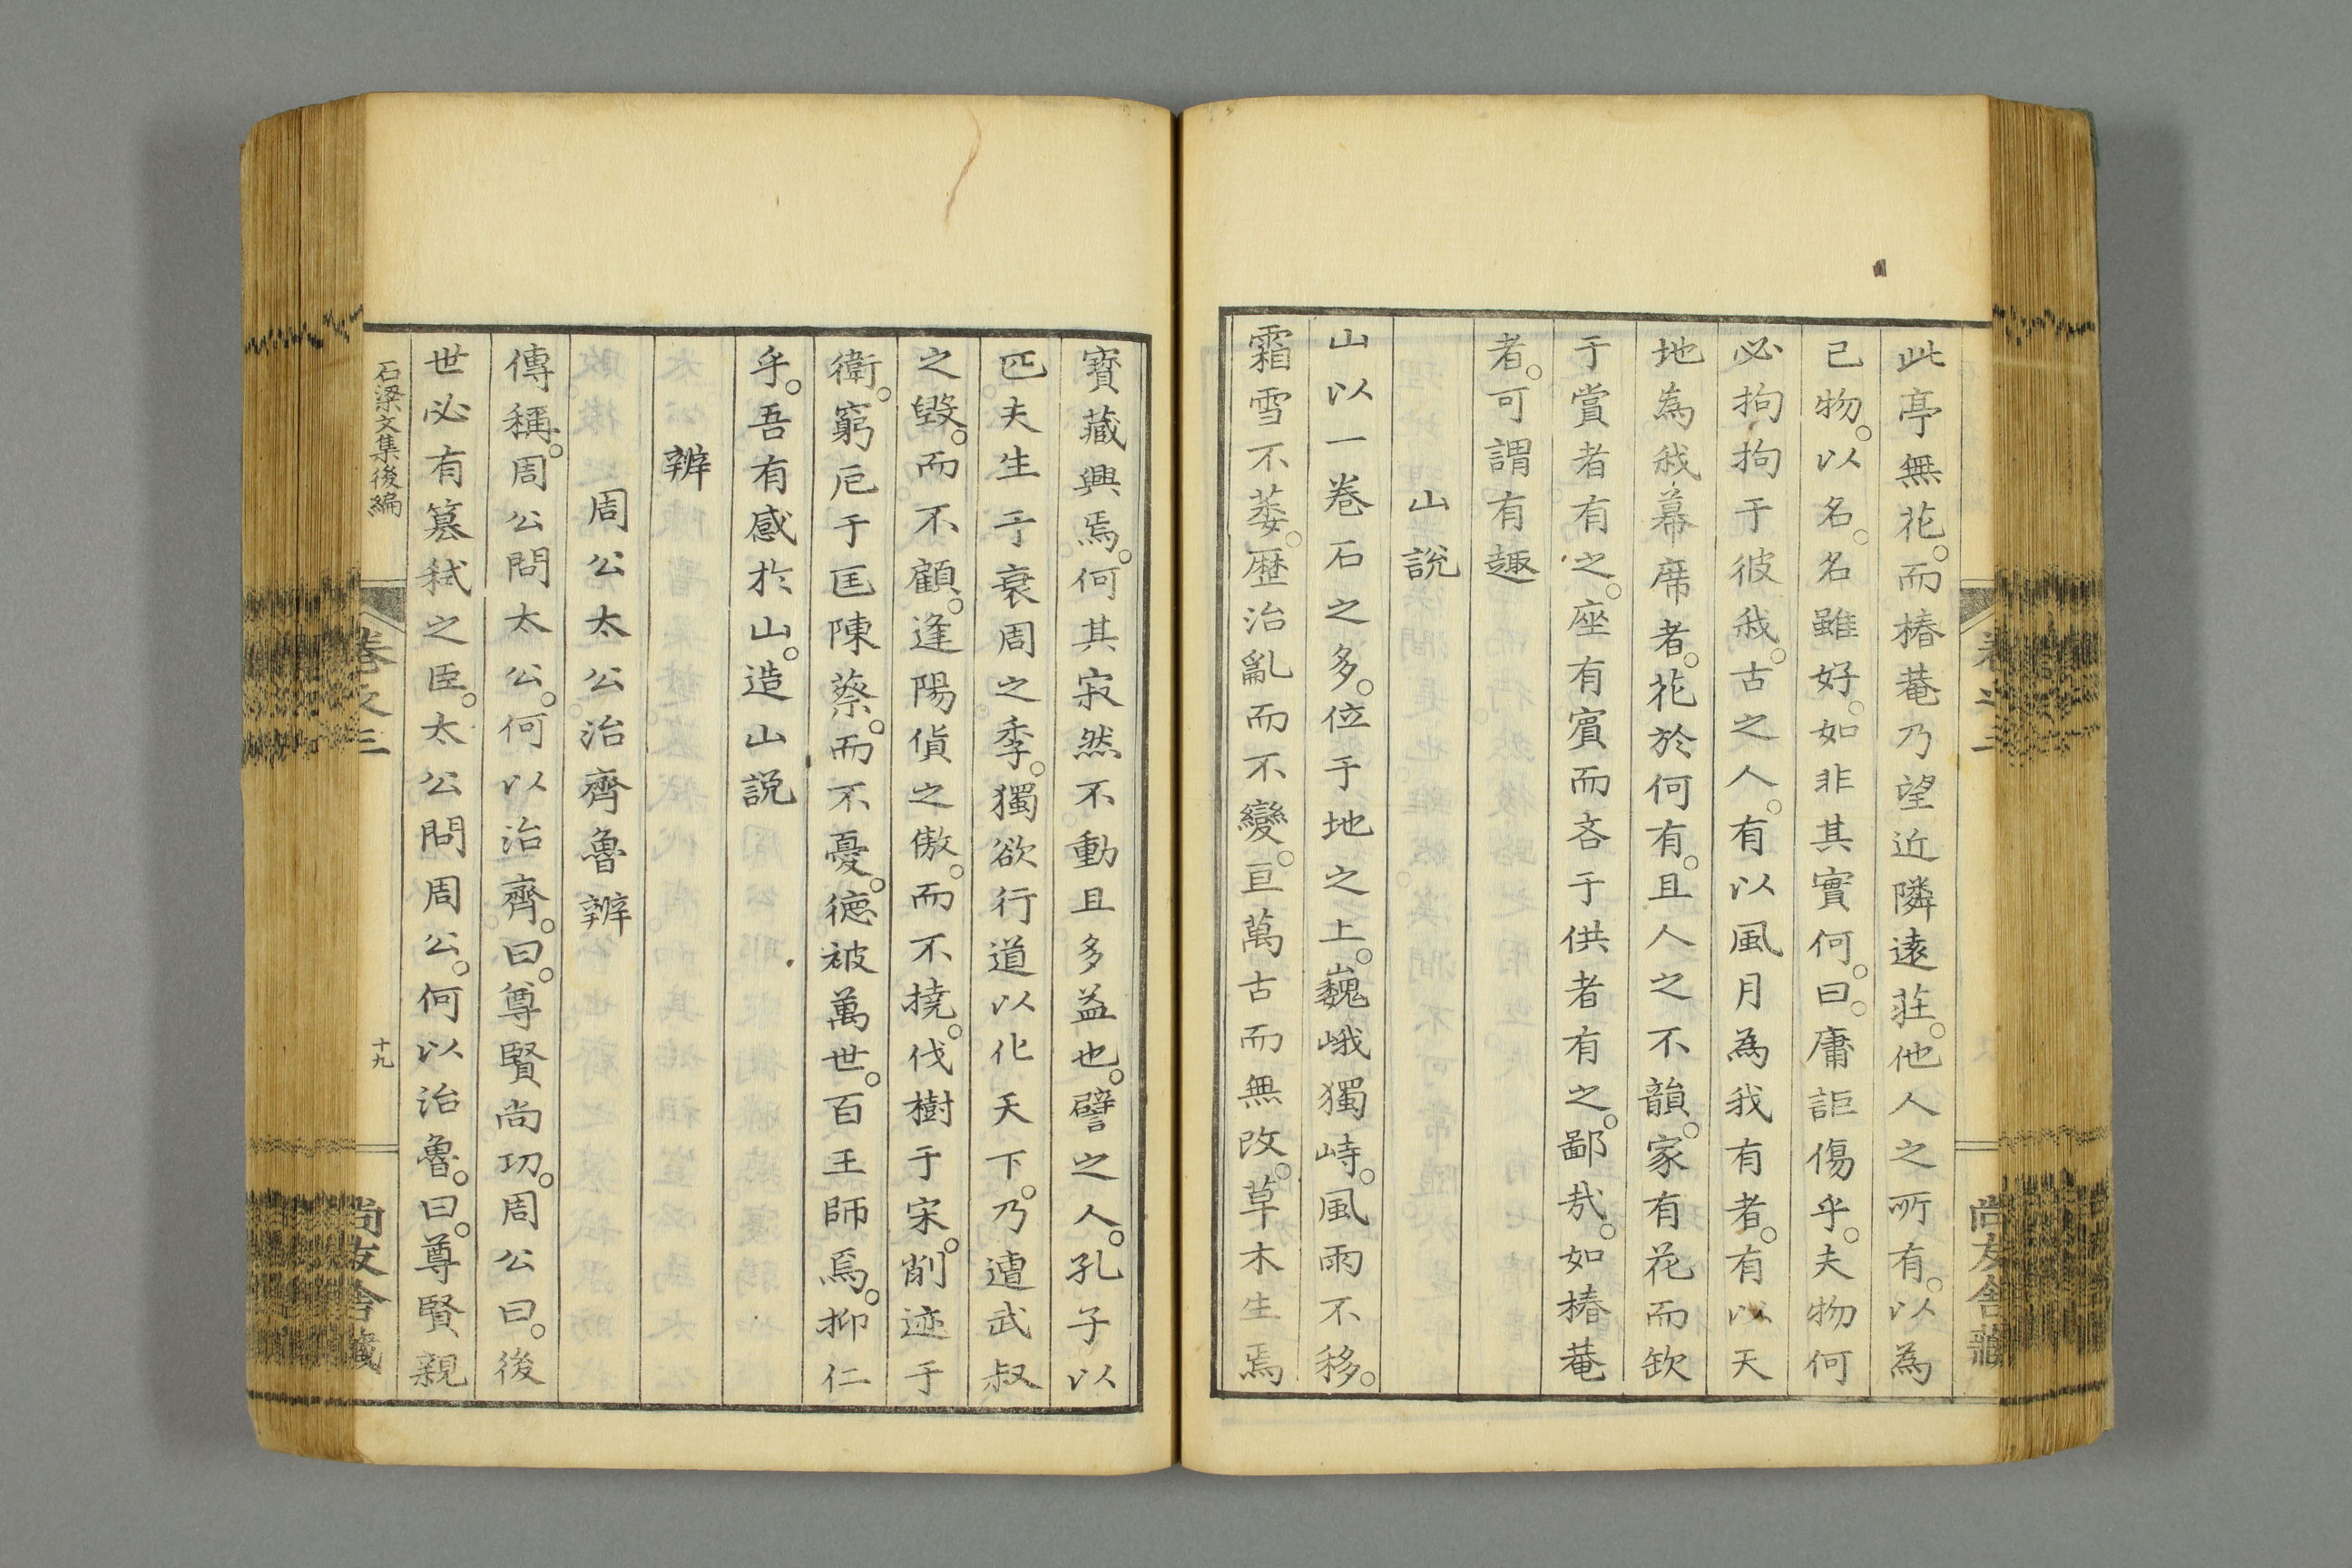 此亭無花。而椿菴乃望近隣遠莊。他人之所有。以為
己物。以名。名雖好。如非其實何。曰。庸詎傷乎。夫物何
必拘拘于彼我。古之人。有以風月為我有者。有以天
地為我幕席者。花於何有。且人之不韻。家有花而缼
于賞者有之。座有賓而吝于供者有之。鄙哉。如椿菴
者。可謂有趣
山說
山以一卷石之多。位于地之上。巍峨獨峙。風雨不移。
霜雪不萎。歷治亂而不變。亘萬古而無改。草木生焉
寶藏興焉。何其寂然不動且多益也。譬之人。孔子以
匹夫生于衰周之季。獨欲行道以化天下。乃遭武叔
之毀。而不顧。逢陽貨之傲。而不撓。伐樹于宋。削迹于
衛。窮厄于匡陳蔡。而不憂。德被萬世。百王師焉。抑仁
乎。吾有感於山。造山說
辨
周公太公治齊魯辨
傳稱。周公問太公。何以治齊。曰。尊賢尚功。周公曰。後
世必有簒弒之臣。太公問周公。何以治魯。曰。尊賢親
石梁文集後編
卷之三
十九
尚友舍藏